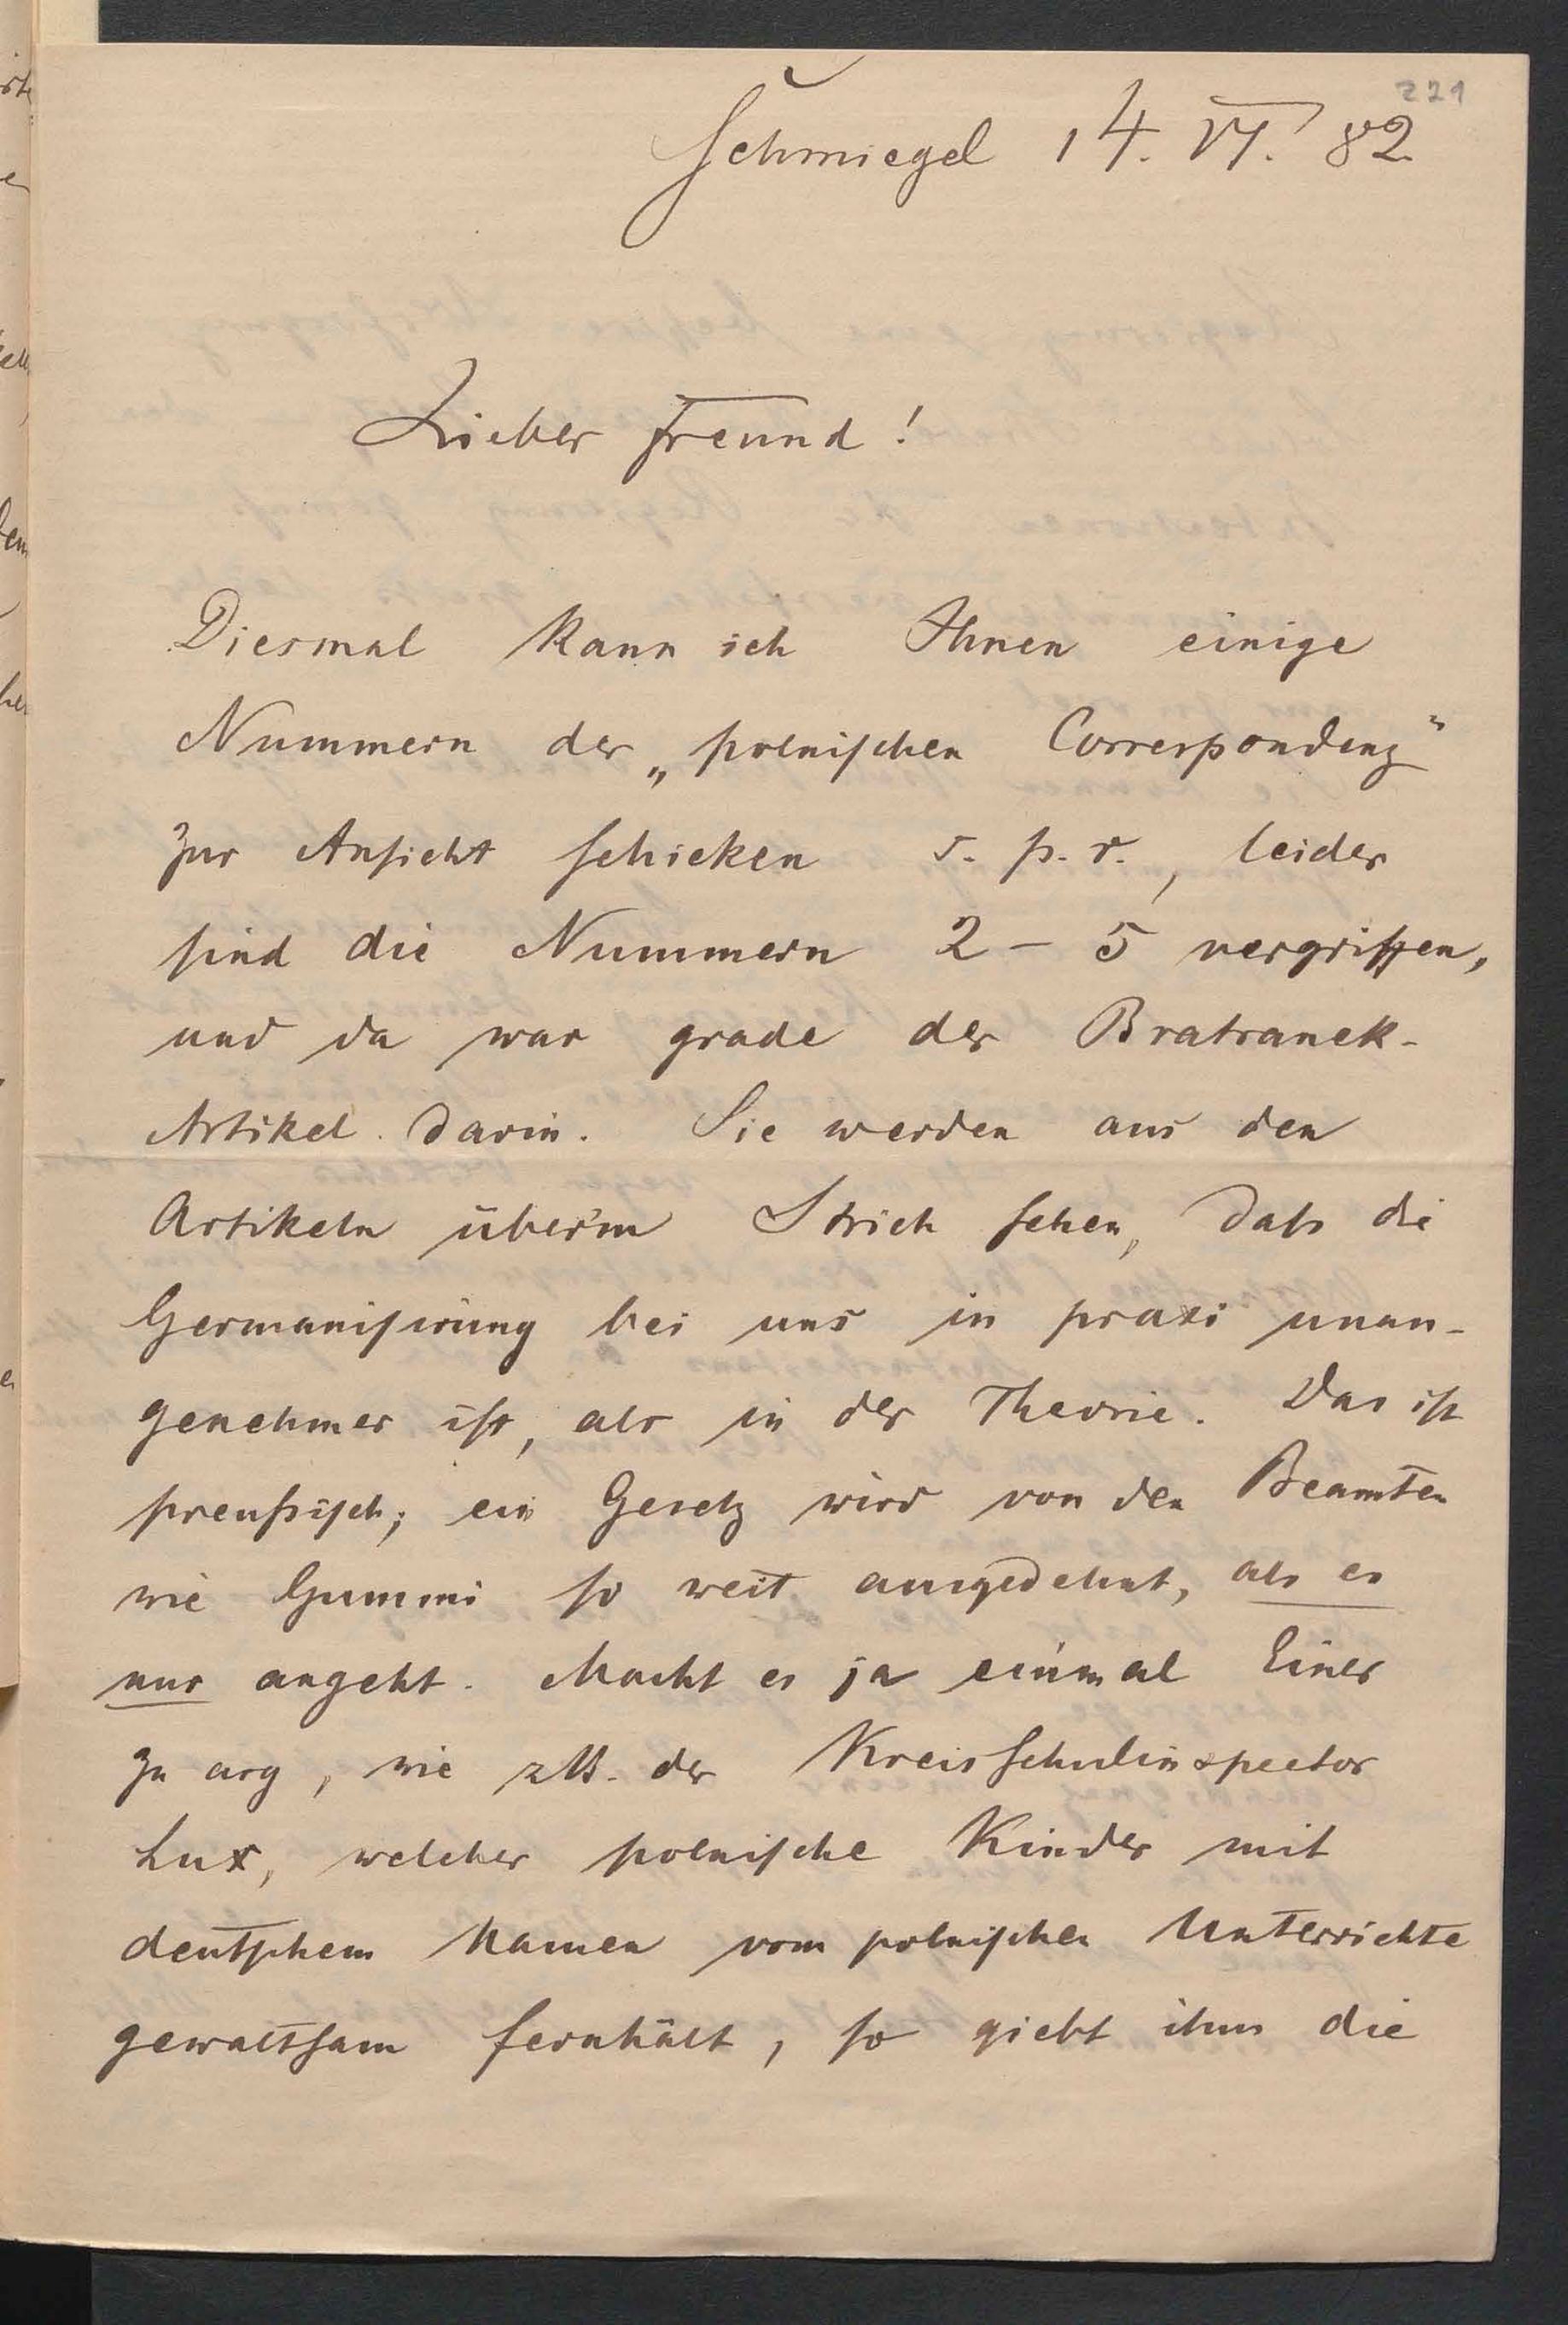 221
Schmiegel 14. VI. 82
Lieber Freund!
Diesmal kann ich Ihnen einige
Nummern der „polnischen Correspondenz“
zur Ansicht schicken s. p. r., leider
sind die Nummern 2 – 5 vergriffen,
und da war grade der Bratranek-
Artikel darin. Sie werden aus den
Artikeln über'm Strich sehen, daß die
Germanisirung bei uns in praxi unan-
genehmer ist, als in der Theorie. Das ist
preußisch; ein Gesetz wird von den Beamten
wie Gummi so weit ausgedehnt, als es
nur angeht. Macht es ja einmal Einer
zu arg, wie zB. der Kreisschulinspector
Lux, welcher polnische Kinder mit
deutschem Namen vom polnischen Unterrichte
gewaltsam fernhält, so giebt ihm die